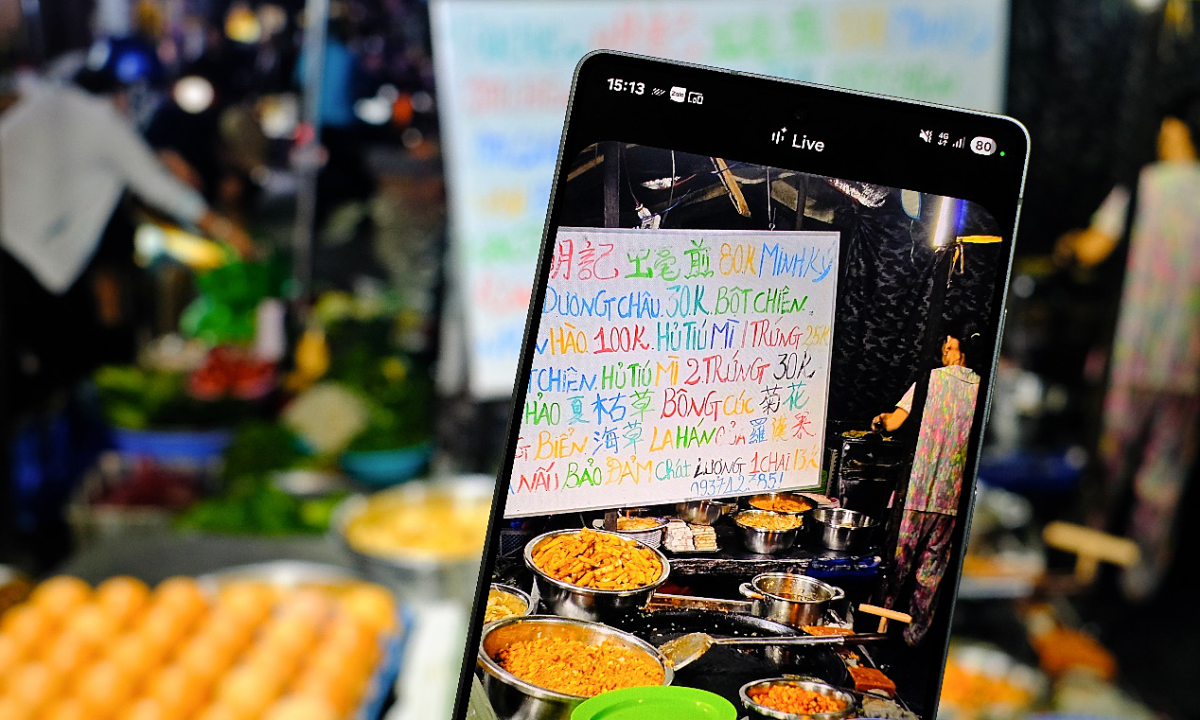 15:13
Zalo
Live
4G
80
明記 出毫煎 80.K MINH KÝ
DƯƠNG CHÂU. 30K. BỘT CHIÊN.
HÀO. 100K. HỦ TIÚ MÌ 1 TRỨNG 25K
CHIÊN. HỦ TIÚ MÌ 2. TRỨNG. 30K
THẢO 夏枯草 BÔNG CÚC 菊花
BIỂN. 海草 LA HÁN QUẢ 羅漢果
NẤU BẢO ĐẢM Chất LƯỢNG 1 CHAI 13K